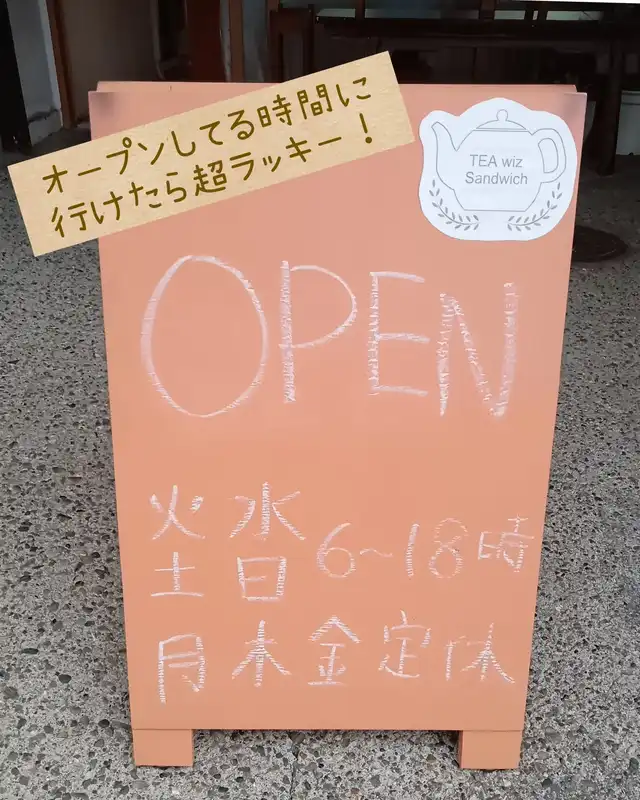 オープンしてる時間に
行けたら超ラッキー！
TEA wiz
Sandwich
OPEN
火 水
土 日 6〜18時
月 木 金 定休